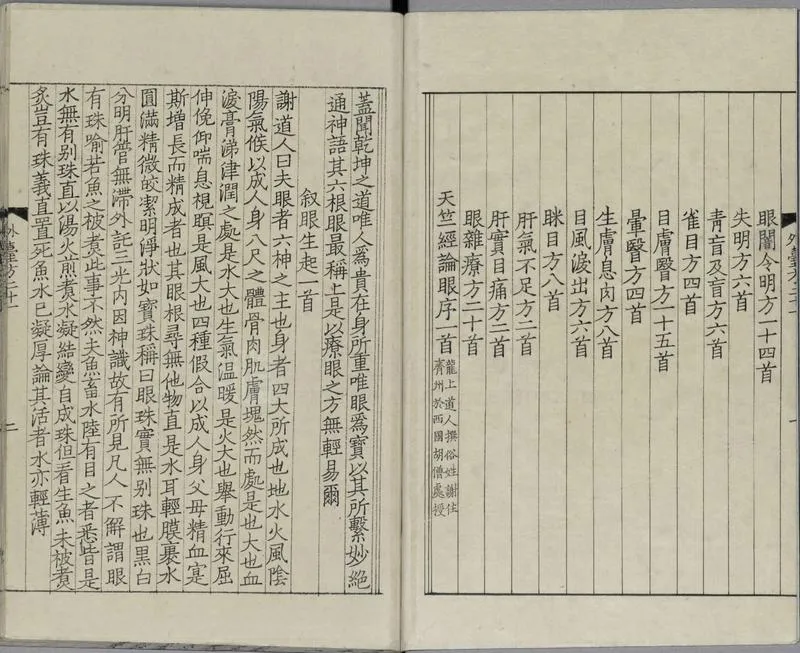 眼闇令明方一十四首
失明方六首
青盲及盲方六首
雀目方四首
目膚翳方一十五首
暈翳方四首
生膚息肉方八首
目風淚出方六首
眯目方八首
肝氣不足方二首
肝實目痛方二首
眼雜療方二十首
天竺經論眼序一首
隴上道人撰俗姓謝住
齊州於西國胡僧處授
蓋聞乾坤之道唯人為貴在身所重唯眼為寶以其所繫妙絕
通神語其六根眼最稱上是以療眼之方無輕易爾
叙眼生起一首
謝道人曰夫眼者六神之主也身者四大所成也地水火風陰
陽氣候以成人身八尺之體骨肉肌膚塊然而處是也大也血
淚膏涕津潤之處是水大也生氣溫暖是火大也舉動行來屈
伸俛仰喘息視瞑是風大也四種假合以成人身父母精血寔
斯增長而精成者也其眼根尋無他物直是水耳輕膜裹水
圓滿精微皎潔明淨狀如寶珠稱曰眼珠實無別珠也黑白
分明肝管無滯外託三光內因神識故有所見凡人不解謂眼
有珠喻若魚之被煮此事不然夫魚畜水陸有目之者悉皆是
水無有別珠直以湯火煎煮水凝結變自成珠但看生魚未被煮
炙豈有珠義直置死魚水已凝厚論其活者水亦輕薄
外臺方二十一
二